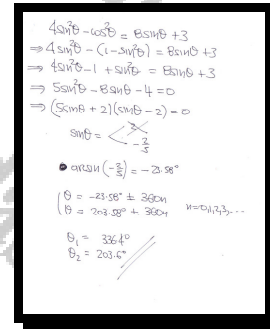 4sin²θ - cos²θ = 8sinθ + 3
⇒ 4sin²θ - (1 - sin²θ) = 8sinθ + 3
⇒ 4sin²θ - 1 + sin²θ = 8sinθ + 3
⇒ 5sin²θ - 8sinθ - 4 = 0
⇒ (5sinθ + 2)(sinθ - 2) = 0
sinθ = < 2
-2/5
• arcsin(-2/5) = -23.58°
(θ = -23.58° ± 360n
(θ = 203.58° ± 360n n=0,1,2,3,...
θ₁ = 336.4°
θ₂ = 203.6°